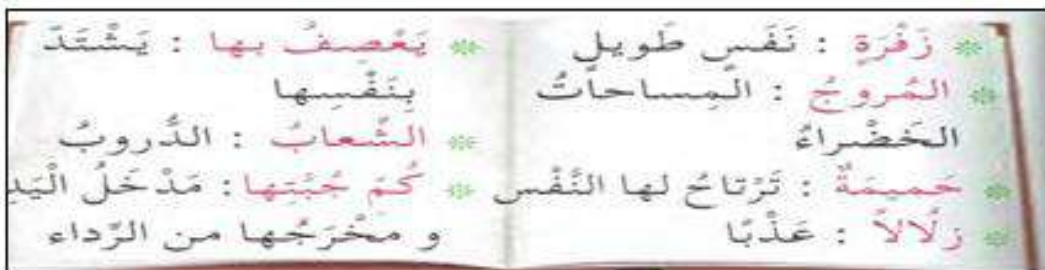 * زَفْرَةٍ : نَفَسٍ طَويلٍ
* المُروجُ : المِساحاتُ
الخَضْراءُ
* حَميمَةٌ : تَرْتاحُ لها النَّفْس
* زلُالاً : عَذْبًا
* يَعْصِفُ بها : يَشْتَدّ
بِنَفْسِها
* الشِّعابُ : الدُّروبُ
* كُمّ جُبَّتِها : مَدْخَلُ الْيَدِ
و مَخْرَجُها من الرِّداء